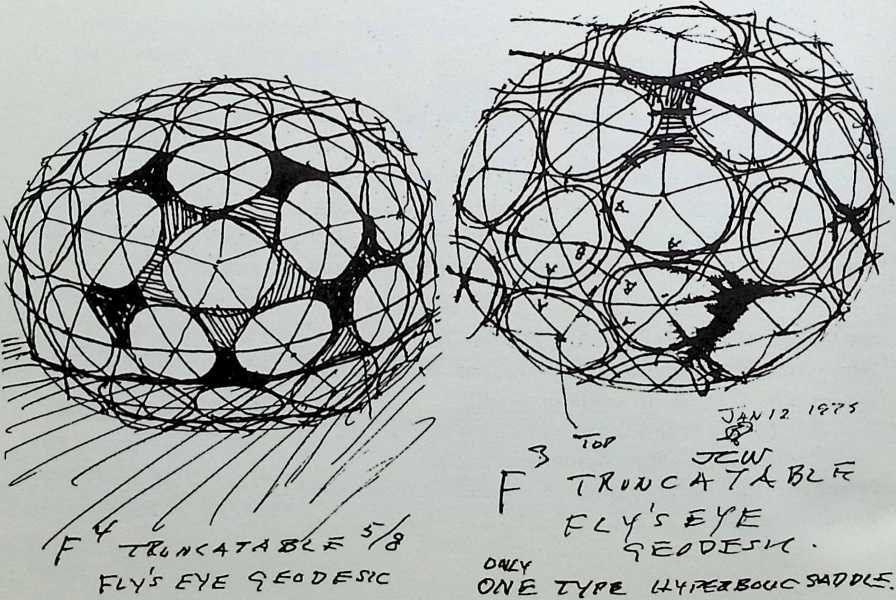 F4 TRUNCATABLE 5/8
FLY'S EYE GEODESIC
TOP
JAN 12 1975
JCW
F3 TRUNCATABLE
FLY'S EYE
GEODESIC.
ONLY
ONE TYPE HYPERBOLIC SADDLE.